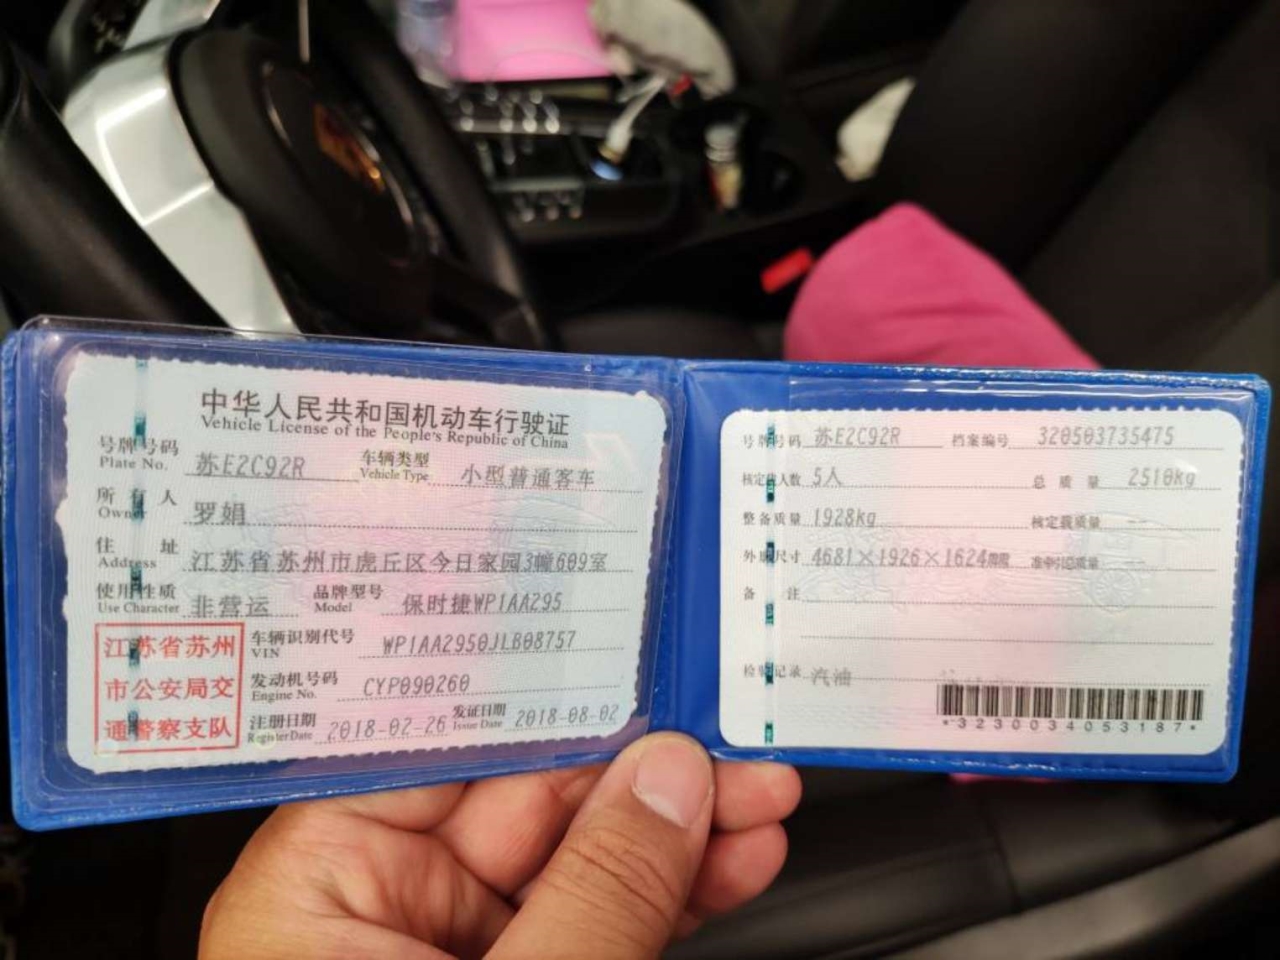 中华人民共和国机动车行驶证
Vehicle License of the People's Republic of China
号牌号码 苏E2C92R 车辆类型 小型普通客车
Plate No. Vehicle Type
所有人 罗娟
Owner
住址 江苏省苏州市虎丘区今日家园3幢609室
Address
使用性质 非营运 品牌型号 保时捷WP1AA295
Use Character Model
江苏省苏州
市公安局交
通警察支队
车辆识别代号 WP1AA2950JLB08757
VIN
发动机号码 CYP090260
Engine No.
注册日期 2018-02-26 发证日期 2018-08-02
Register Date Issue Date
号牌号码 苏E2C92R 档案编号 320503735475
核定载人数 5人 总质量 2510kg
整备质量 1928kg 核定载质量 --
外廓尺寸 4681×1926×1624mm 准牵引总质量
备注
检验记录 汽油
*3230034053187*